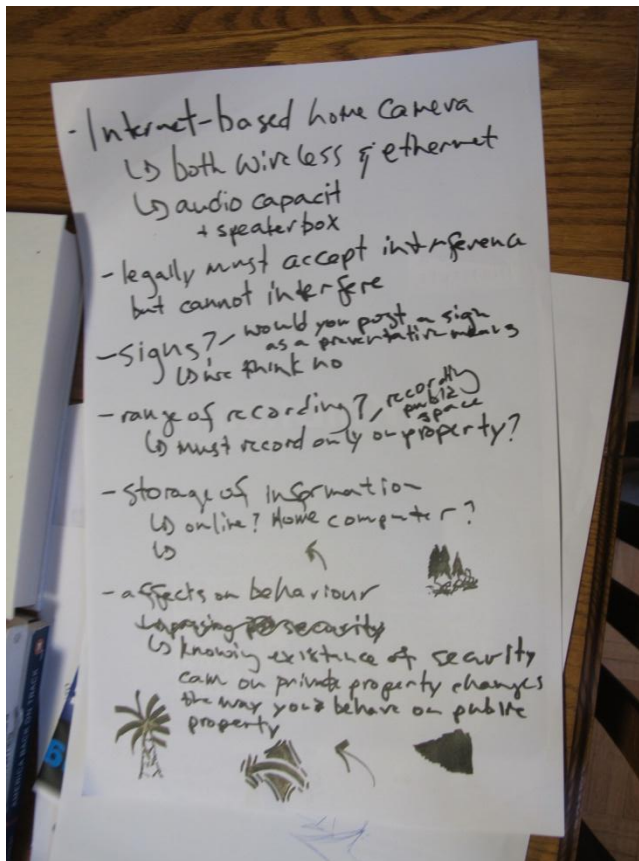 - Internet-based home camera
↳ both wireless & ethernet
↳ audio capacit
+ speakerbox
- legally must accept interference
but cannot interfere
- signs? - would you post a sign
as a preventative means
↳ we think no
- range of recording? / recording
public
space
↳ Must record only on property?
- storage of information
↳ online? Home computer?
↳
- affects on behaviour
security
↳ knowing existance of security
cam on private property changes
the way you behave on public
property
AMERICA BACK ON TRACK
B